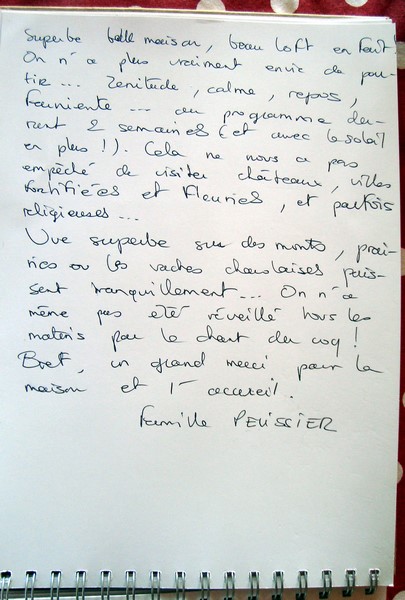 Superbe belle maison, beau loft en fait !
On n'a plus vraiment envie de par-
tir... Zenitude, calme, repos,
farniente... au programme du-
rant 2 semaines (et avec le soleil
en plus !). Cela ne nous a pas
empêché de visiter châteaux, villes
fortifiées et fleuries, et parfois
religieuses...
Vue superbe sur des monts, prai-
ries où les vaches charolaises puis-
sent tranquillement... On n'a
même pas été réveillé tous les
matins par le chant du coq !
Bref, un grand merci pour la
maison et l'accueil.
Famille PELISSIER